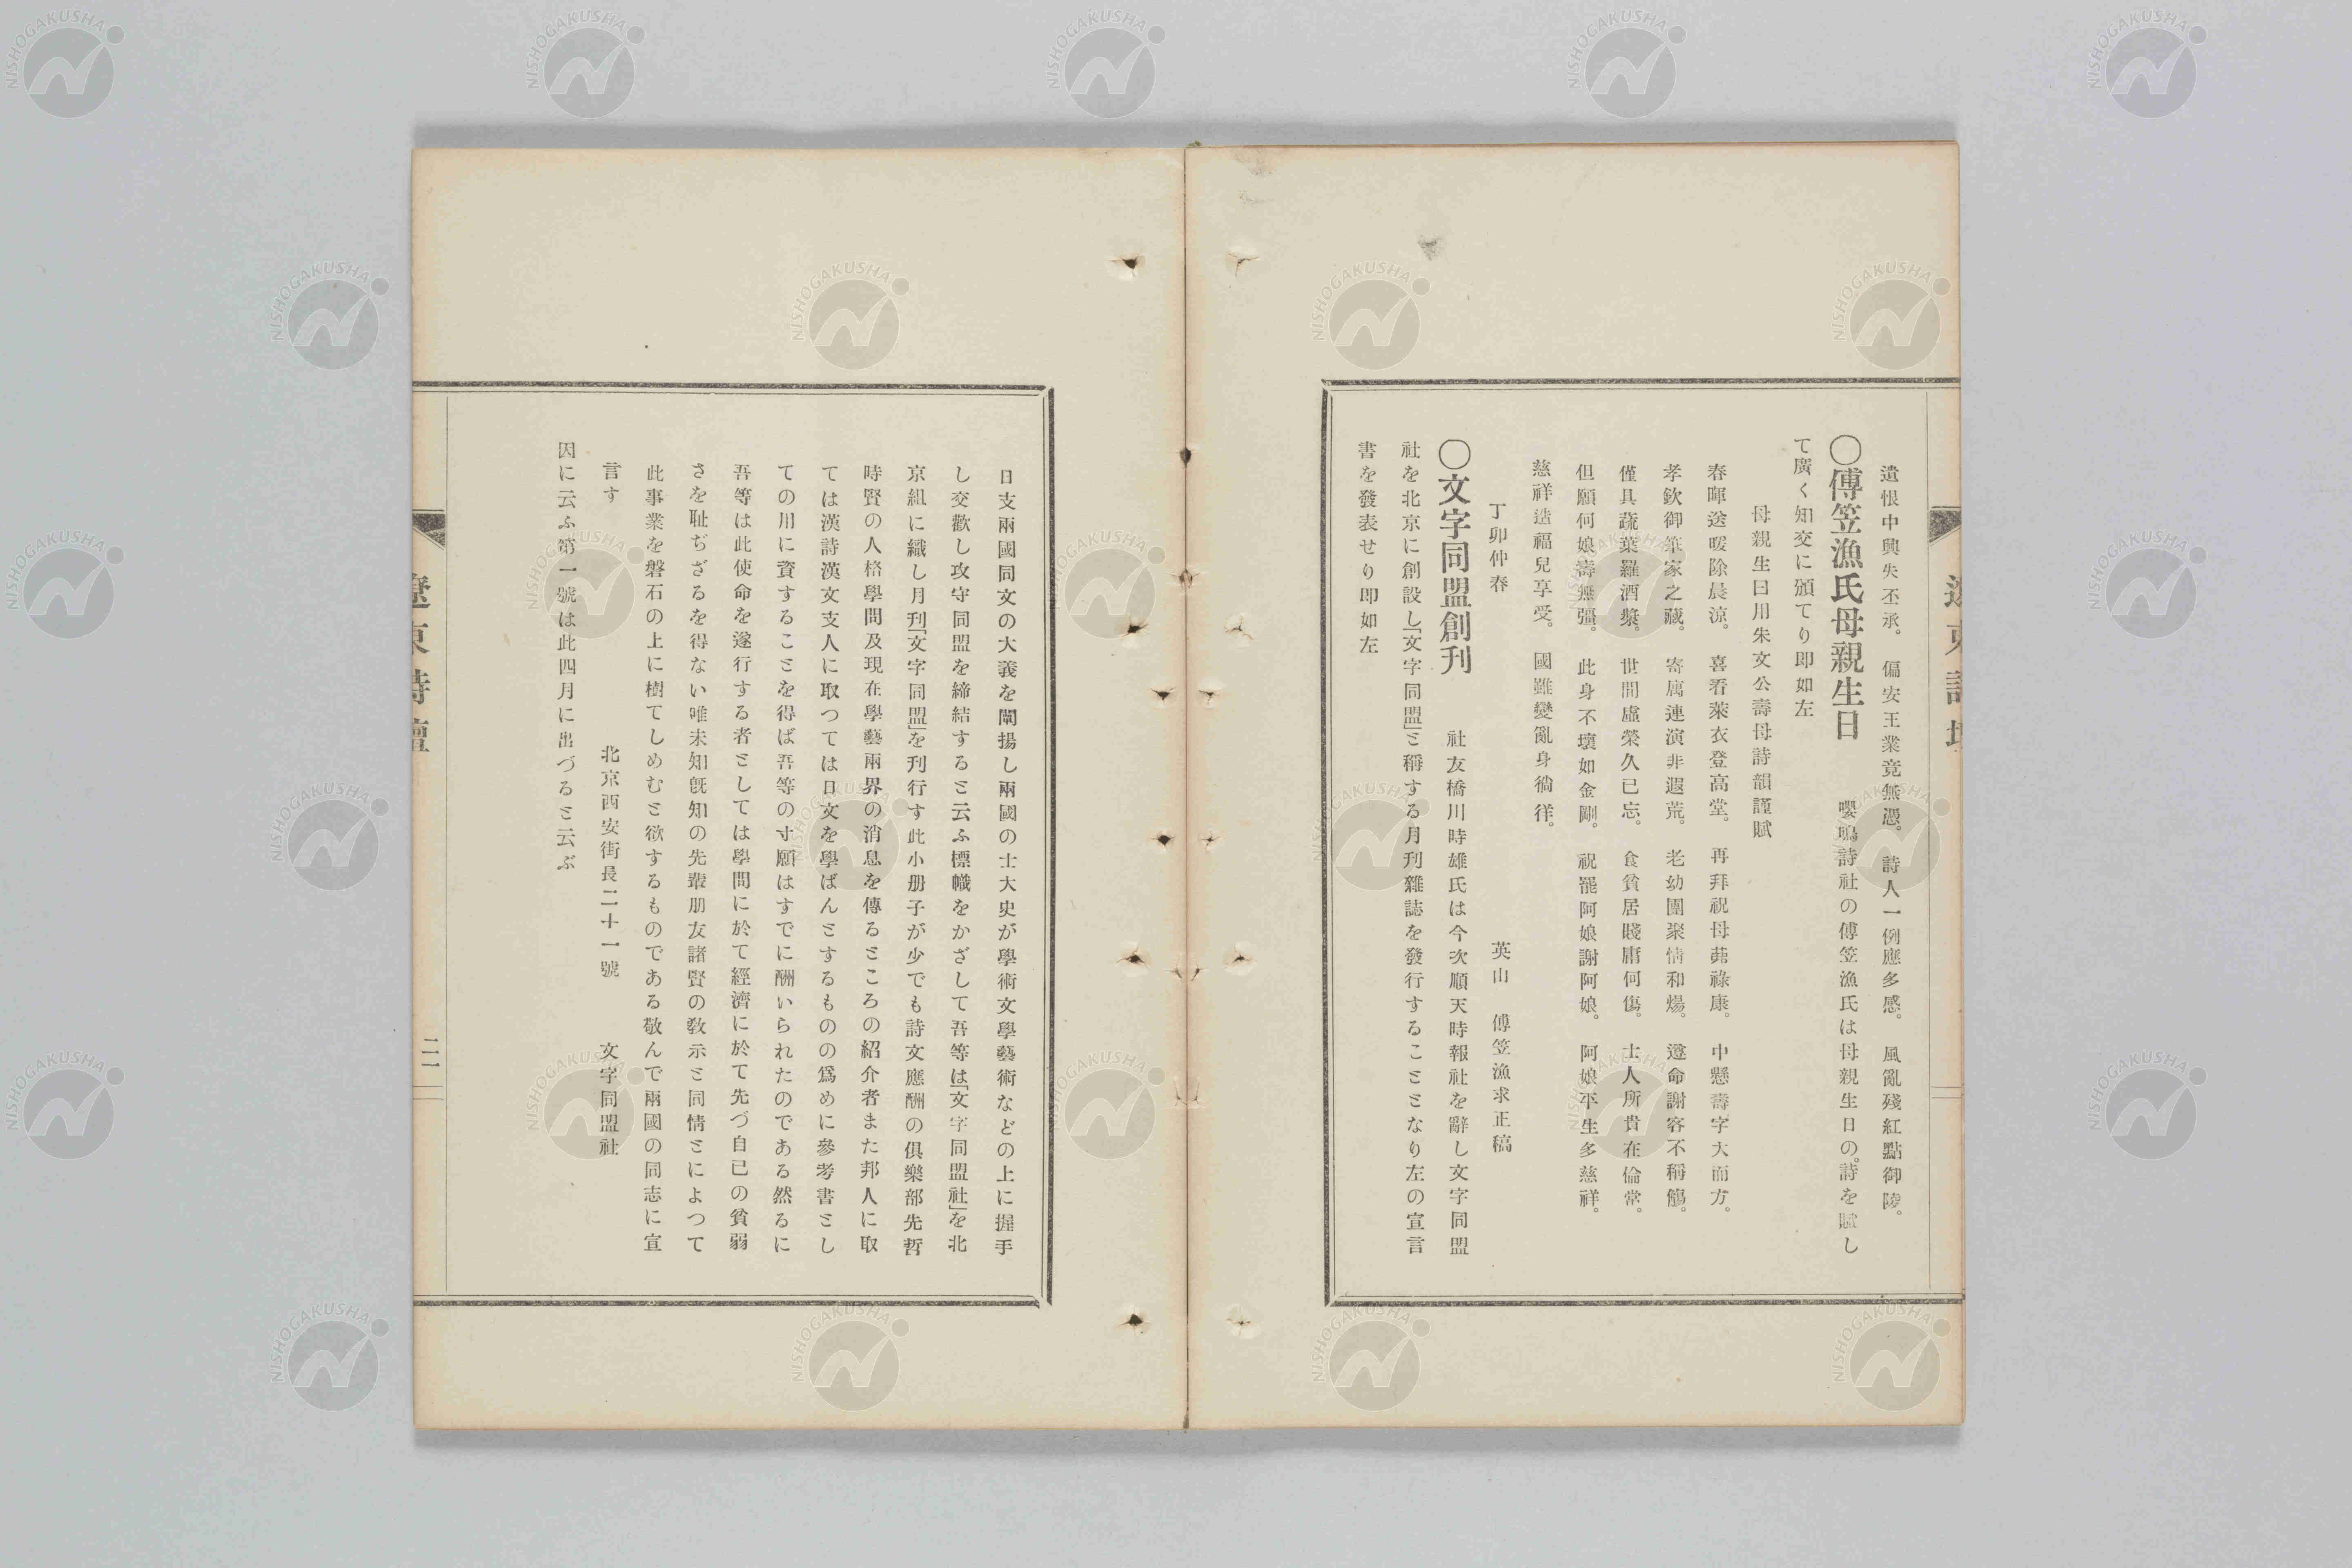 遺恨中興失丕承。 偏安王業竟無憑。 詩人一例應多感。 風亂殘紅點御陵。
〇傅笠漁氏母親生日 嚶鳴詩社の傅笠漁氏は母親生日の。詩を賦し
て廣く知交に頒てり即如左
母親生日用朱文公壽母詩韻謹賦
春暉送暖除晨涼。 喜看萊衣登高堂。 再拜祝母茀祿康。 中懸壽字大而方。
孝欽御筆家之藏。 寄屬連演非遐荒。 老幼團聚情和煬。 遵命謝客不稱觴。
僅具蔬菜羅酒漿。 世間虛榮久已忘。 食貧居賤庸何傷。 士人所貴在倫常。
但願何娘壽無彊。 此身不壞如金剛。 祝罷阿娘謝阿娘。 阿娘平生多慈祥。
慈祥造福兒享受。 國雖變亂身徜徉。
丁卯仲春 英山 傅笠漁求正稿
〇文字同盟創刊 社友橋川時雄氏は今次順天時報社を辭し文字同盟
社を北京に創設し「文字同盟」と稱する月刊雜誌を發行することとなり左の宣言
書を發表せり即如左
日支兩國同文の大義を闡揚し兩國の士大史が學術文學藝術などの上に握手
し交歡し攻守同盟を締結すると云ふ標幟をかざして吾等は「文字同盟社」を北
京組に織し月刊「文字同盟」を刊行す此小册子が少でも詩文應酬の俱樂部先哲
時賢の人格學問及現在學藝兩界の消息を傳るところの紹介者また邦人に取
ては漢詩漢文支人に取つては日文を學ばんとするものの爲めに參考書とし
ての用に資することを得ば吾等の寸願はすでに酬いられたのである然るに
吾等は此使命を遂行する者としては學問に於て經濟に於て先づ自己の貧弱
さを耻ぢざるを得ない唯未知旣知の先輩朋友諸賢の敎示と同情とによつて
此事業を磐石の上に樹てしめむと欲するものである敬んで兩國の同志に宣
言す
北京西安街長二十一號 文字同盟社
因に云ふ第一號は此四月に出づると云ぶ
遼東詩壇
二一
NISHOGAKUSHA